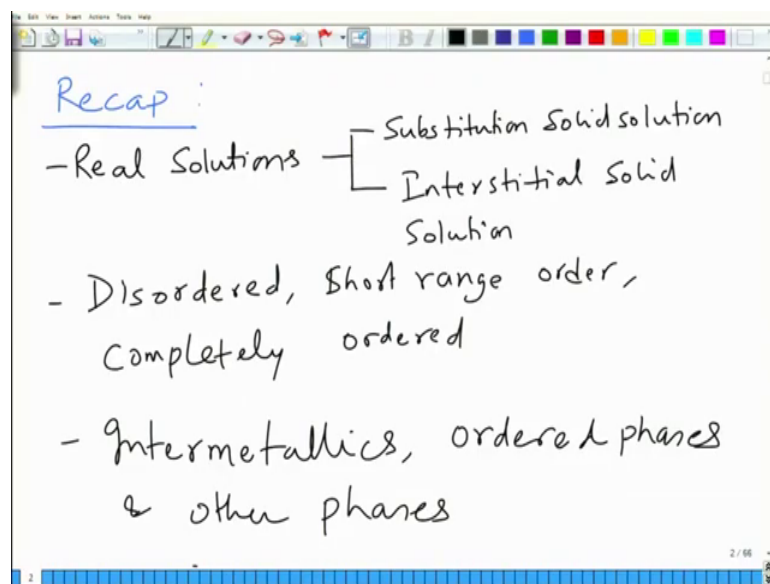 File Edit View Insert Actions Tools Help
B I
Recap :
- Real Solutions
Substitution Solid solution
Interstitial Solid
Solution
- Disordered, Short range order,
completely ordered
- Intermetallics, ordered phases
& other phases
2 / 66
2